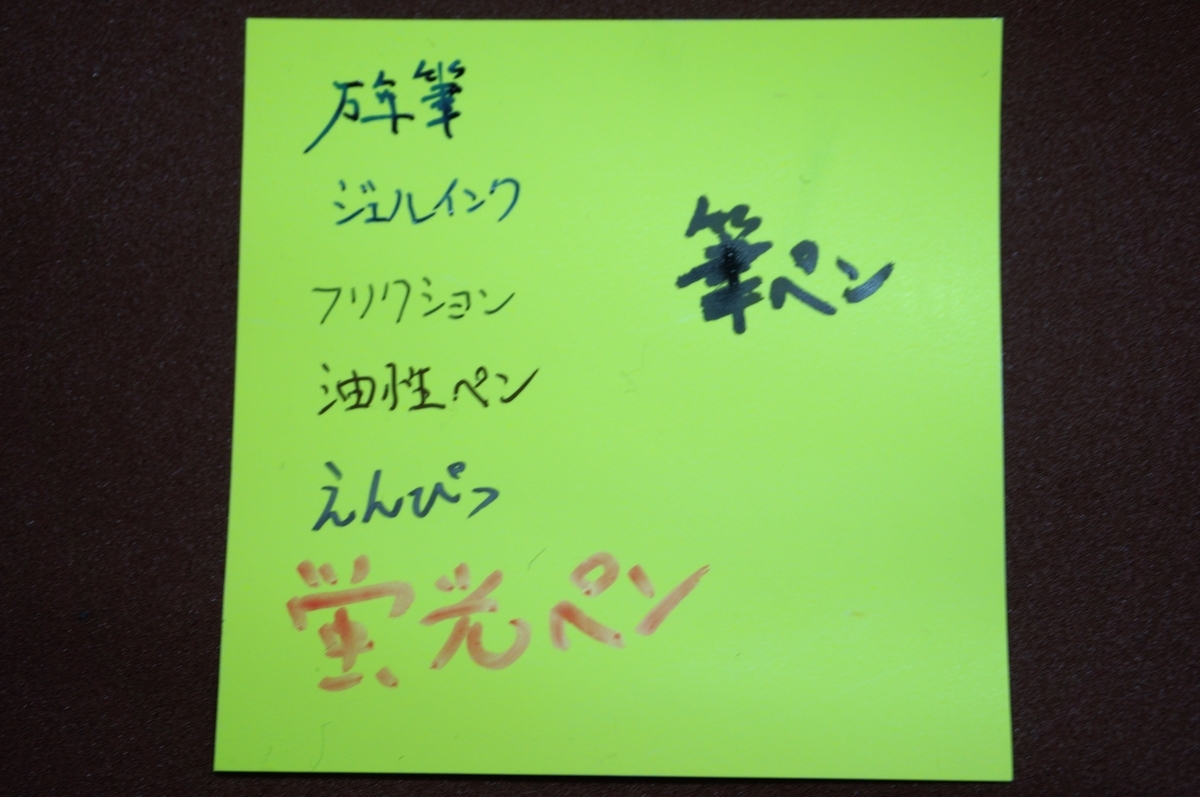 万年筆
ジェルインク
フリクション
油性ペン
えんぴつ
蛍光ペン
筆ペン